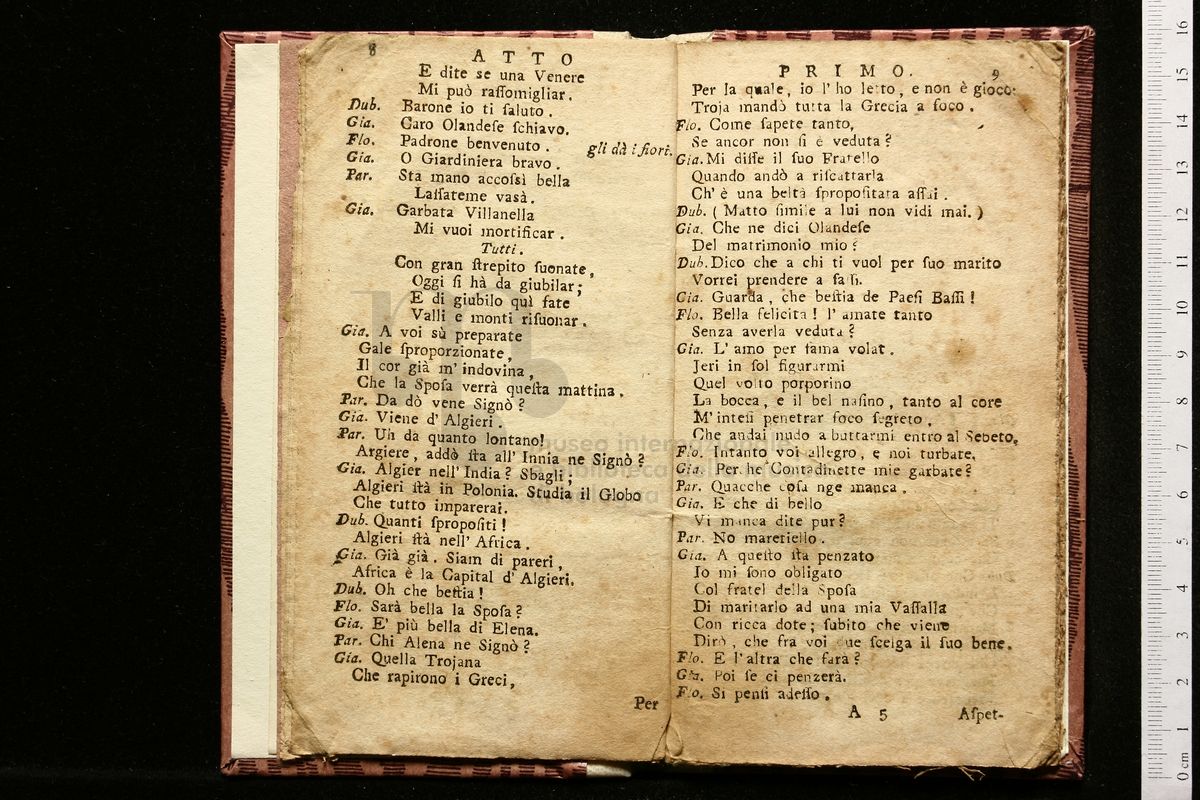 8
ATTO
E dite se una Venere
Mi può raſſomigliar.
Dub. Barone io ti ſaluto.
Gia. Caro Olandeſe ſchiavo.
Flo. Padrone benvenuto. gli dà i fiori.
Gia. O Giardiniera bravo.
Par. Sta mano accoſsì bella
Laſſateme vasà.
Gia. Garbata Villanella
Mi vuoi mortificar.
Tutti.
Con gran ſtrepito ſuonate,
Oggi ſi hà da giubilar;
E di giubilo quì fate
Valli e monti riſuonar.
Gia. A voi sù preparate
Gale ſproporzionate,
Il cor già m' indovina,
Che la Spoſa verrà queſta mattina.
Par. Da dò vene Signò?
Gia. Viene d' Algieri.
Par. Uh da quanto lontano!
Argiere, addò ſta all' Innia ne Signò?
Gia. Algier nell' India? Sbagli;
Algieri ſtà in Polonia. Studia il Globo
Che tutto imparerai.
Dub. Quanti ſpropoſiti!
Algieri ſtà nell' Africa.
Gia. Già già. Siam di pareri,
Africa è la Capital d' Algieri.
Dub. Oh che beſtia!
Flo. Sarà bella la Spoſa?
Gia. E' più bella di Elena.
Par. Chi Alena ne Signò?
Gia. Quella Trojana
Che rapirono i Greci,
Per
PRIMO.
9
Per la quale, io l' ho letto, e non è gioco:
Troja mandò tutta la Grecia a foco.
Flo. Come ſapete tanto,
Se ancor non ſi è veduta?
Gia. Mi diſſe il ſuo Fratello
Quando andò a riſcattarla
Ch' è una beltà ſpropoſitata aſſai.
Dub. (Matto ſimile a lui non vidi mai.)
Gia. Che ne dici Olandeſe
Del matrimonio mio?
Dub. Dico che a chi ti vuol per ſuo marito
Vorrei prendere a ſaſſi.
Gia. Guarda, che beſtia de Paeſi Baſſi!
Flo. Bella felicità! l' amate tanto
Senza averla veduta?
Gia. L' amo per fama volat.
Jeri in ſol figurarmi
Quel volto porporino
La bocca, e il bel naſino, tanto al core
M' inteſi penetrar foco ſegreto,
Che andai nudo a buttarmi entro al Sebeto.
Flo. Intanto voi allegro, e noi turbate.
Gia. Perchè Contadinette mie garbate?
Par. Quacche coſa nge manca.
Gia. E che di bello
Vi manca dite pur?
Par. No maretiello.
Gia. A queſto ſta penzato
Io mi ſono obligato
Col fratel della Spoſa
Di maritarlo ad una mia Vaſſalla
Con ricca dote; ſubito che viene
Dirò, che fra voi due ſcelga il ſuo bene.
Flo. E l' altra che farà?
Gia. Poi ſe ci penzerà.
Flo. Si penſi adeſſo.
A 5
Aſpet-
museo internazionale
e biblioteca della musica
0 cm 1 2 3 4 5 6 7 8 9 10 11 12 13 14 15 16